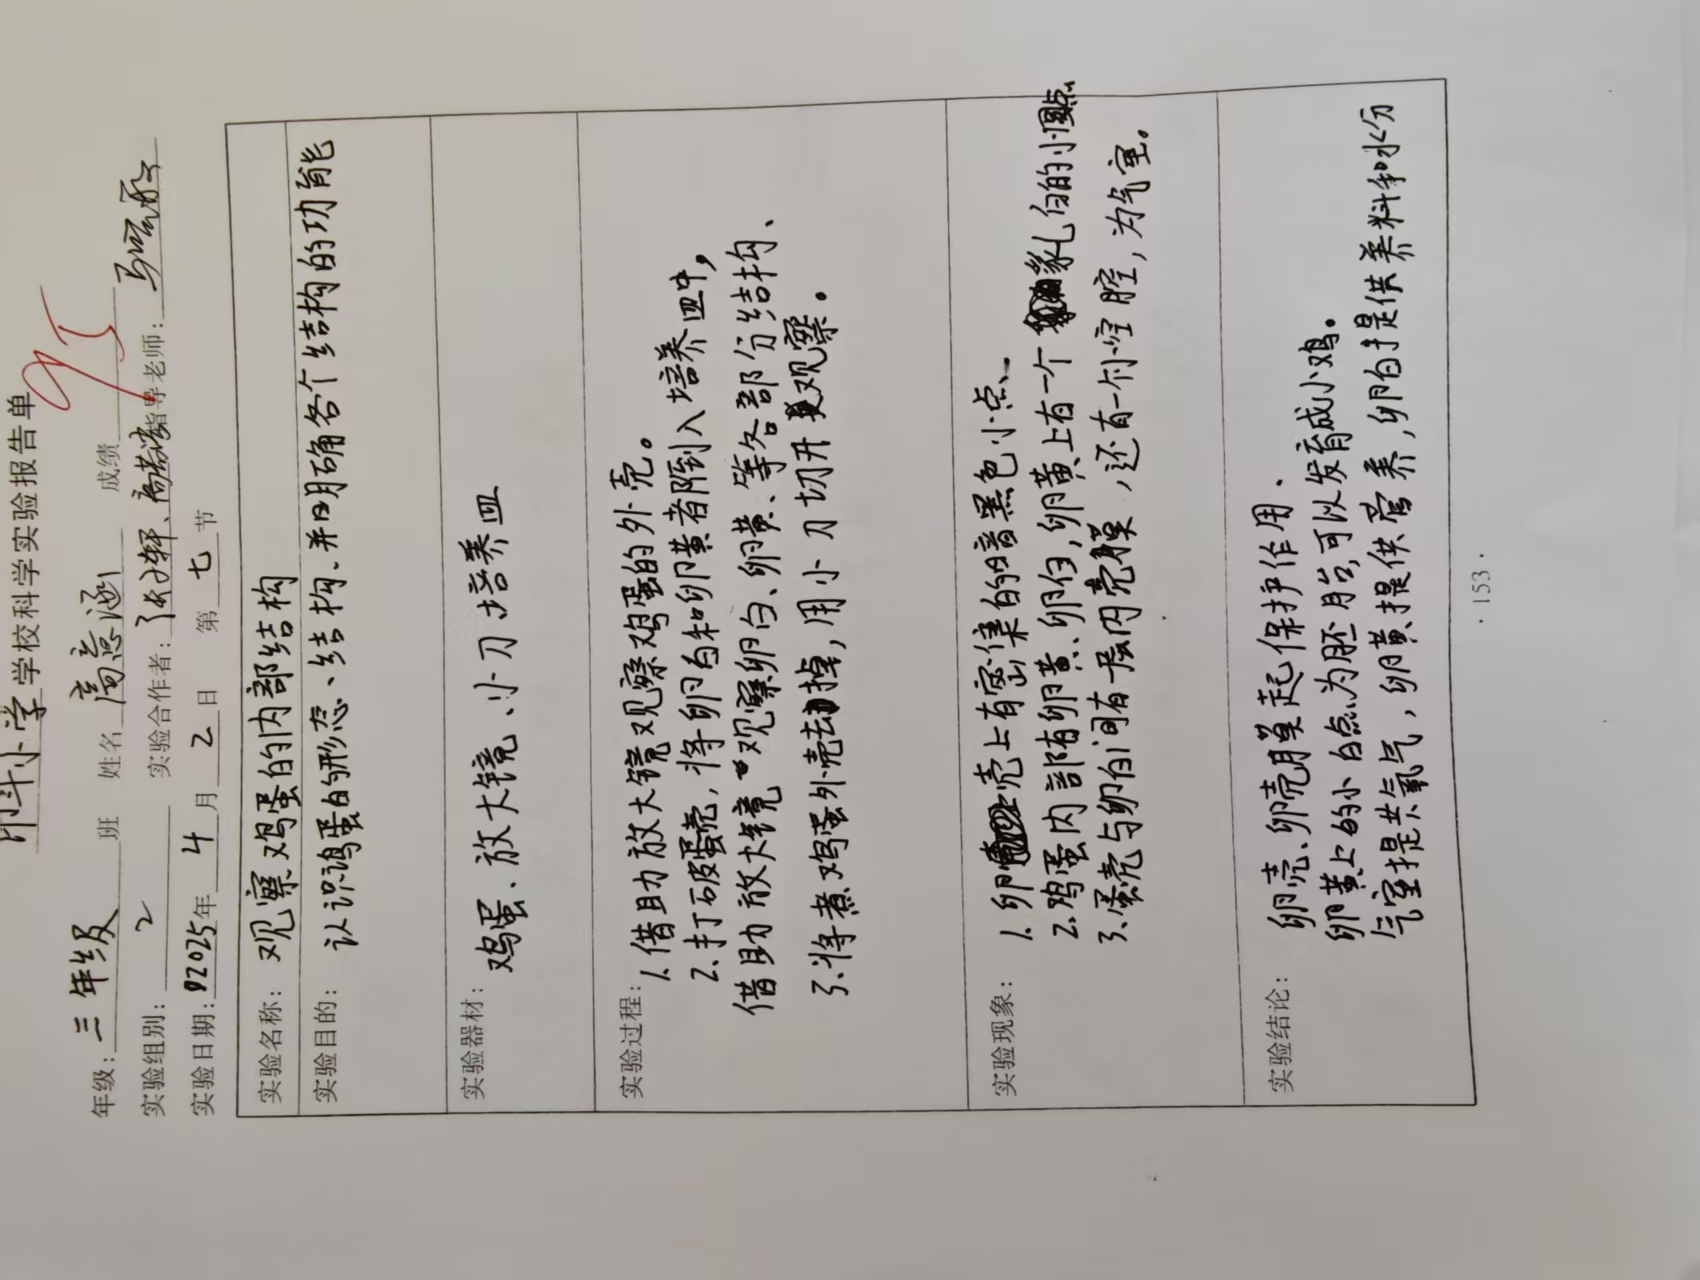 印斗小学学校科学实验报告单
年级：三年级 班 姓名 高意涵 成绩 95
实验组别：2 实验合作者： 指导老师：
实验日期：2025年4月2日 第七节
实验名称：观察鸡蛋的内部结构
实验目的：认识鸡蛋的形态、结构、并明确各个结构的功能
实验器材：鸡蛋、放大镜、小刀、培养皿
实验过程：
1.借助放大镜观察鸡蛋的外壳。
2.打破蛋壳，将卵白和卵黄者倒入培养皿中，
借助放大镜观察卵白、卵黄、等各部分结构、
3.将煮鸡蛋外壳去掉，用小刀切开观察。
实验现象：
1.卵壳上有密集的暗黑色小点、
2.鸡蛋内部有卵黄、卵白，卵黄上有一个乳白的小圆点
3.蛋壳与卵白间有一层内壳膜，还有一个小空腔，为气室。
实验结论：
卵壳、卵壳膜起保护作用、
卵黄上的小白点为胚胎，可以发育成小鸡。
气室提共氧气，卵黄提供营养，卵白提供养料和水分
·153·